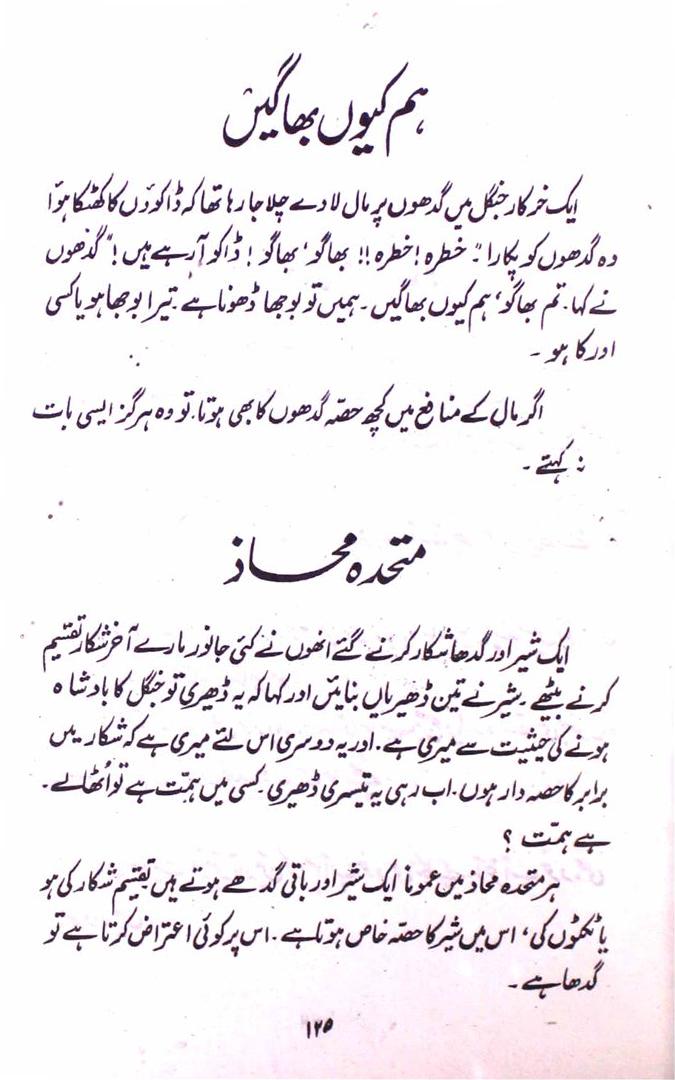 ہم کیوں بھاگیں
ایک خرکار جنگل میں گدھوں پر مال لادے چلا جا رہا تھا کہ ڈاکوؤں کا کھٹکا ہوا
وہ گدھوں کو پکارا "۔ خطرہ! خطرہ!! بھاگو، بھاگو! ڈاکو آ رہے ہیں!" گدھوں
نے کہا۔ تم بھاگو، ہم کیوں بھاگیں۔ ہمیں تو بوجھا ڈھونا ہے۔ تیرا بوجھا ہو یا کسی
اور کا ہو۔
اگر مال کے منافع میں کچھ حصّہ گدھوں کا بھی ہوتا۔ تو وہ ہرگز ایسی بات
نہ کہتے۔
متحدہ محاذ
ایک شیر اور گدھا شکار کرنے گئے انھوں نے کئی جانور مارے آخر شکار تقسیم
کرنے بیٹھے۔ شیر نے تین ڈھیریاں بنائیں اور کہا کہ یہ ڈھیری تو جنگل کا بادشاہ
ہونے کی حیثیت سے میری ہے۔ اور یہ دوسری اس لئے میری ہے کہ شکار میں
برابر کا حصہ دار ہوں۔ اب رہی یہ تیسری ڈھیری۔ کسی میں ہمّت ہے تو اُٹھا لے۔
ہے ہمّت ؟
ہر متحدہ محاذ میں عموماً ایک شیر اور باقی گدھے ہوتے ہیں تقسیم شکار کی ہو
یا ٹکٹوں کی، اس میں شیر کا حصّہ خاص ہوتا ہے۔ اس پر کوئی اعتراض کرتا ہے تو
گدھا ہے۔
۱۲۵